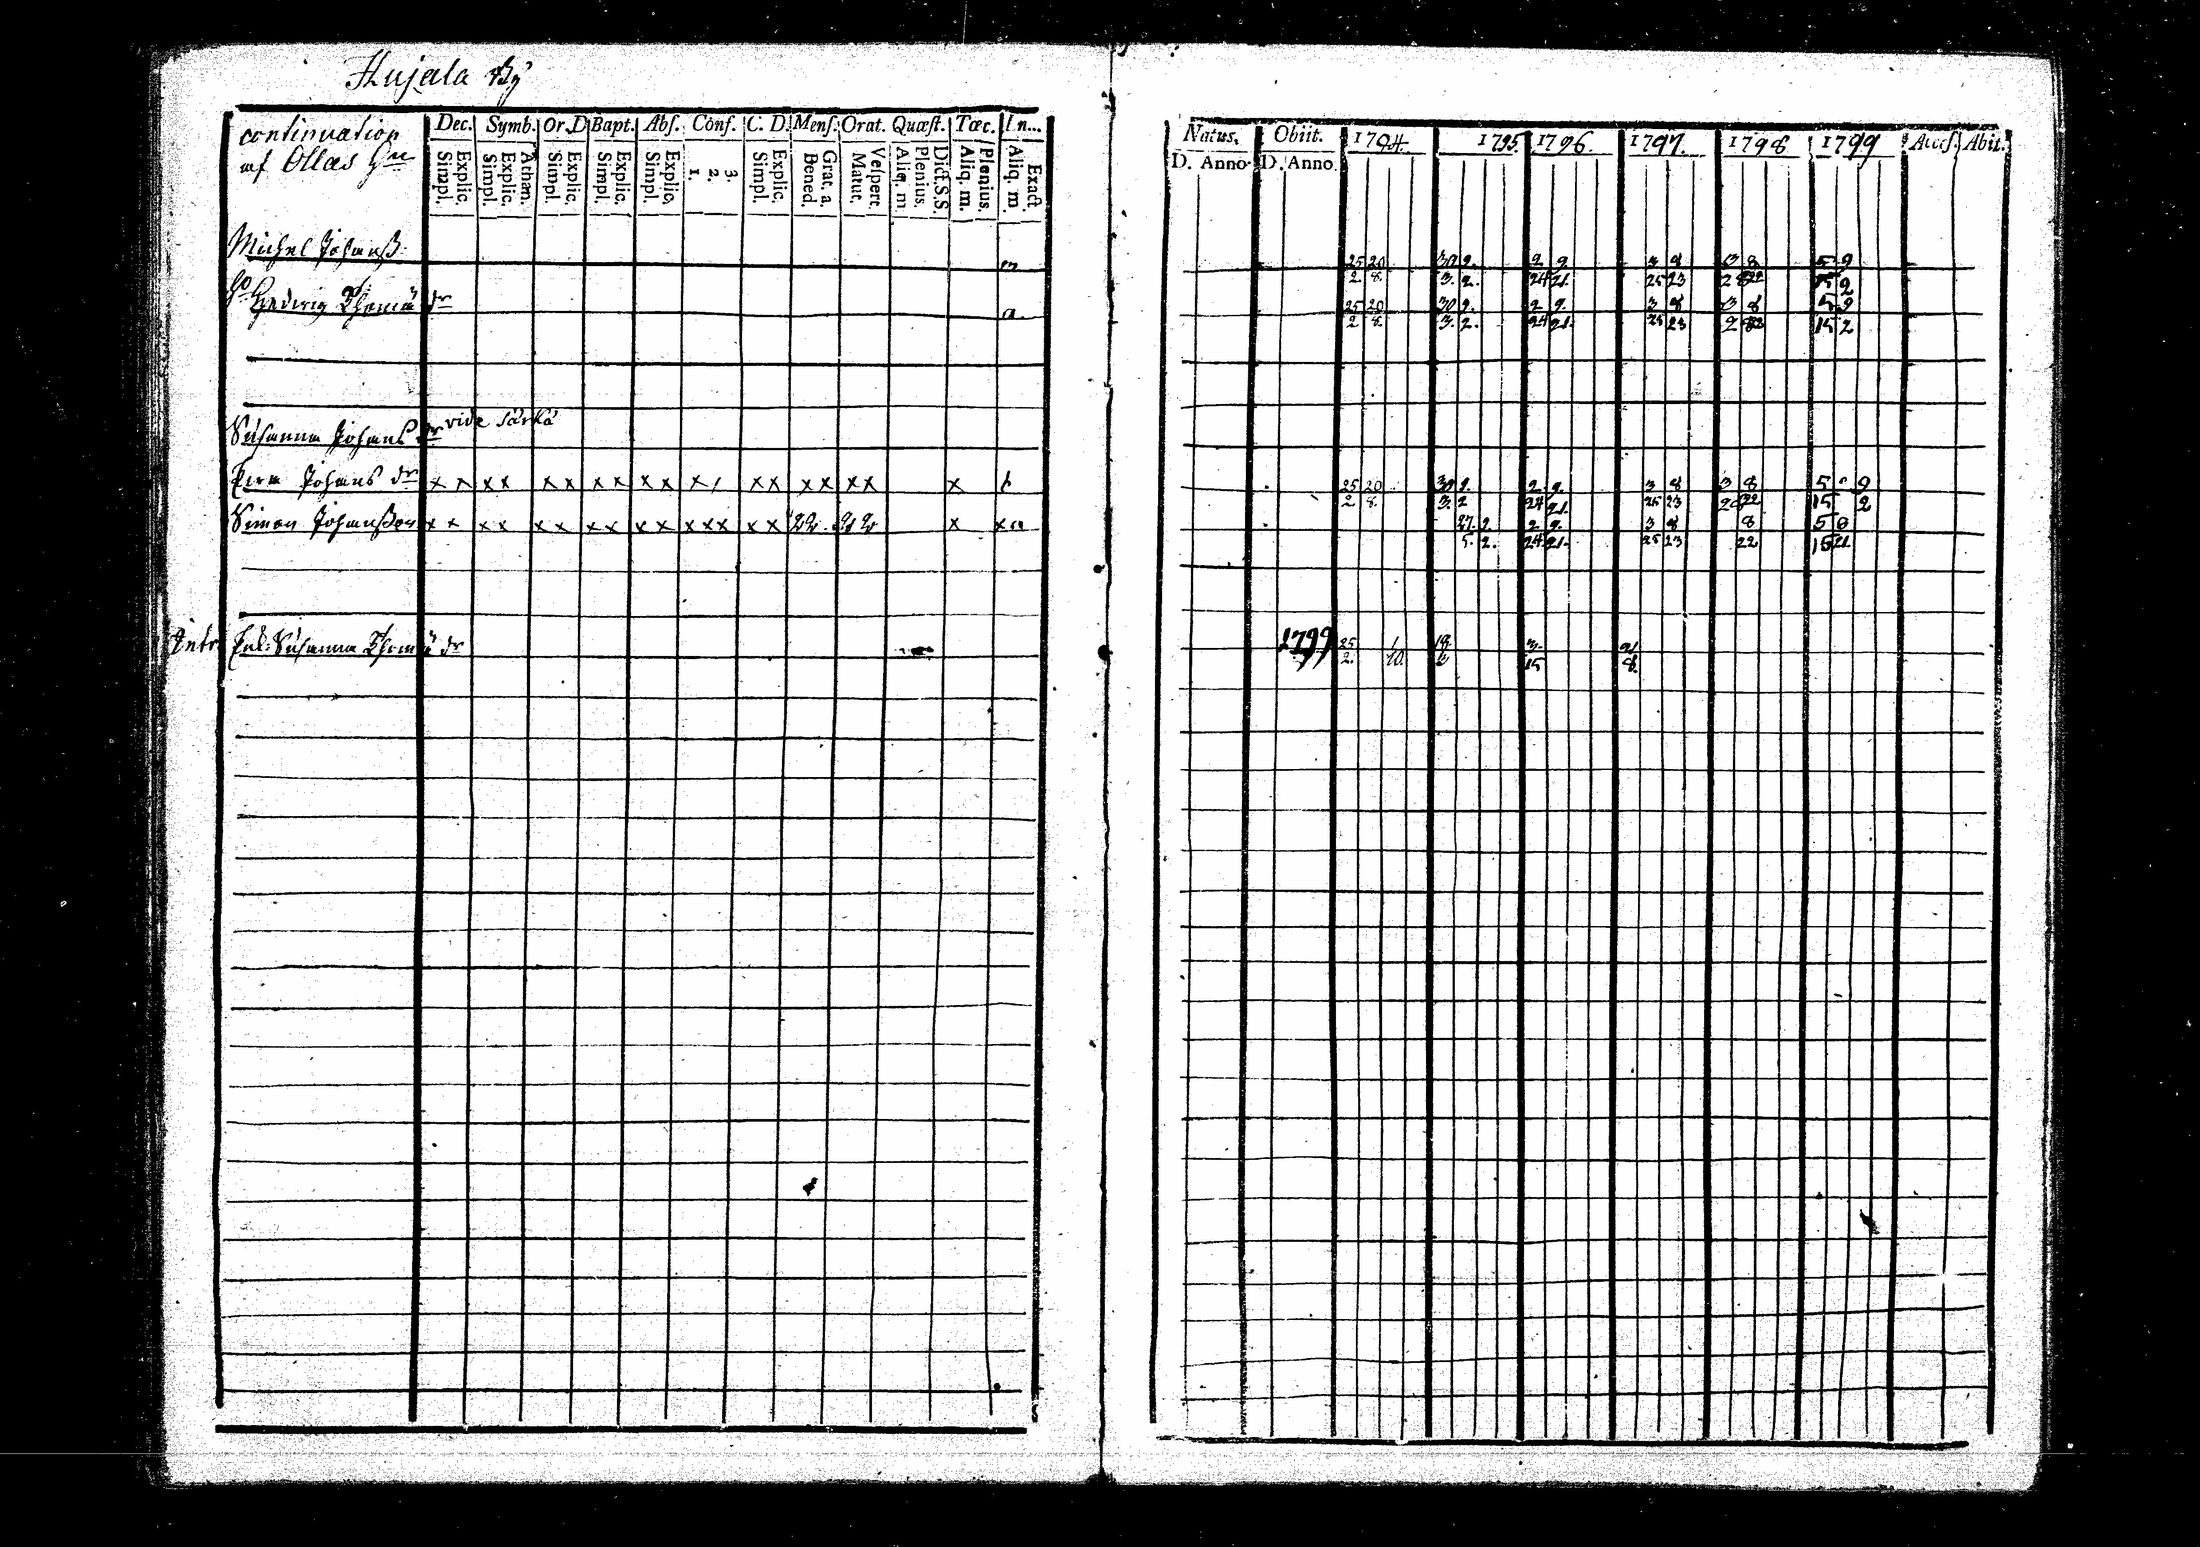 Hujala By
continuation
af Ollas
Dec. Symb. Or. D Bapt. Abſ. Conf. C. D. Menſ. Orat. Quæſt. Tœc. In...
Simpl. Explic. Simpl. Explic. Athan. Simpl. Explic. Simpl. Explic. Simpl. Explic. 1. 2. 3. Simpl. Explic. Bened. Grat. a. Matut. Veſpert. Aliq. m Plenius. Dict. S.S. Aliq. m. Plenius. Aliq. m Exact
Natus. Obiit. 1794. 1795. 1796. 1797. 1798 1799 Acceſ. Abit.
D. Anno D. Anno.
Michel Johanß. 25 20 30 9. 2 9. 3 8 3 8 5 9
2 8. 3. 2. 24 21. 25 23 28 22 15 2
Hedvig Thomä dr a 25 20 30 9. 2 9. 3 8 3 8 5 9
2 8. 3. 2. 24 21. 25 23 28 22 15 2
Susanna Johans dr vide Särkä
Johans dr x x x x x x x x x x x x x x x x x x 25 20 30 9. 2 9. 3 8 3 8 5 9
2 8. 3. 2 24 21. 25 23 28 22 15 2
Simon Johanßon x x x x x x x x x x x x x x x x x a 27. 9. 2 9. 3 8 8 5
5. 2. 24 21. 25 23 22 15 21
Enk: Susanna Thomä dr 1799 25 1 18 3. 21
2. 10. 15 8.